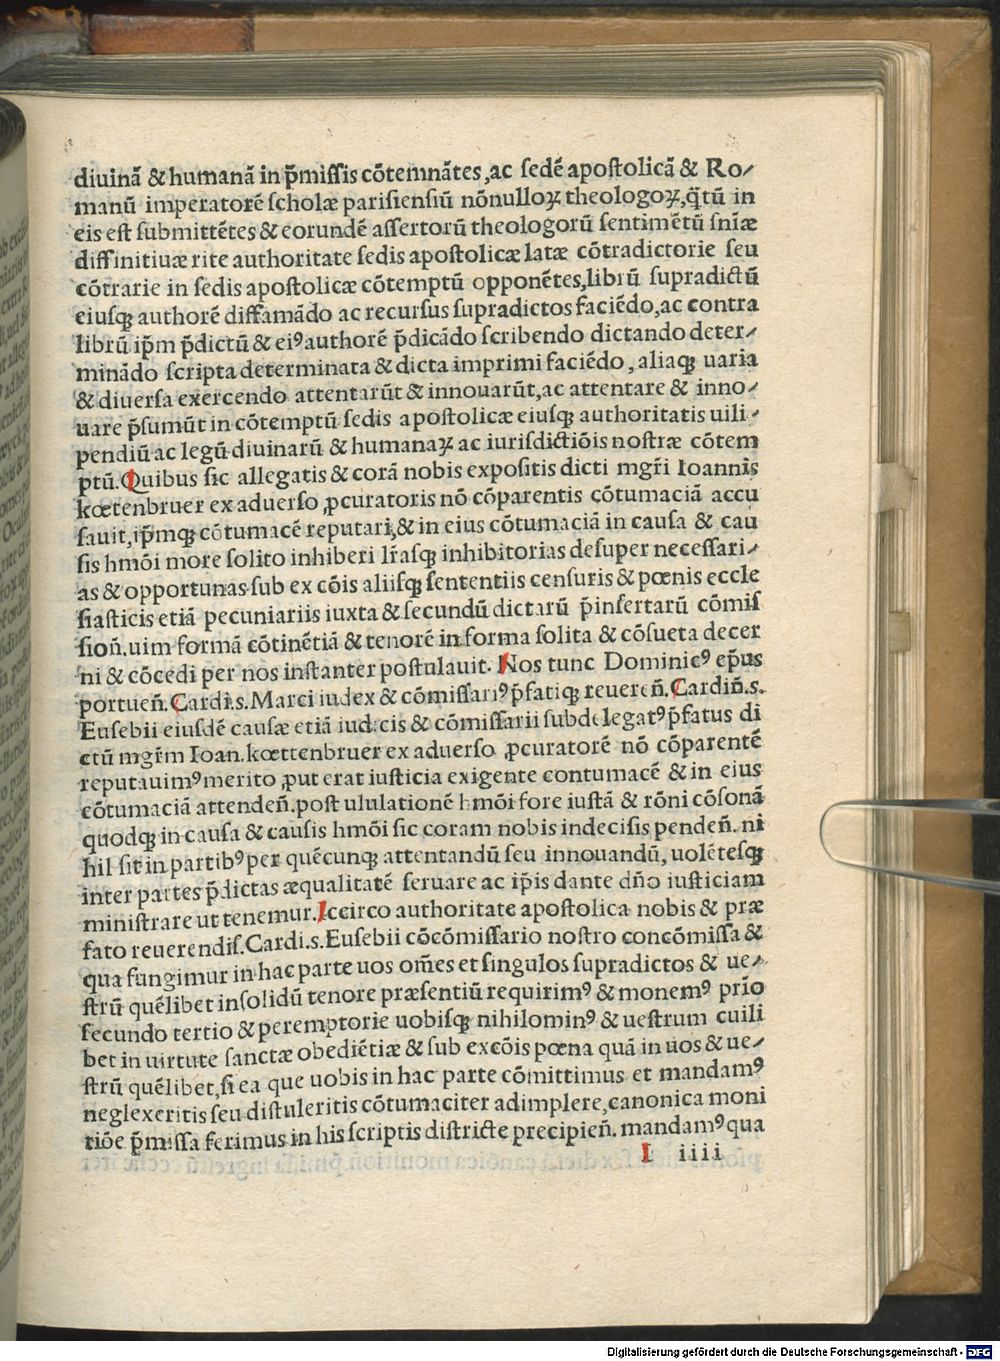 diuinã & humanã in p̃miſſis cõtemnãtes, ac ſedẽ apoſtolicã & Ro⸗
manũ imperatorẽ ſcholæ pariſienſiũ nõnulloꝝ theologoꝝ, q̃tũ in
eis eſt ſubmittẽtes & eorundẽ aſſertorũ theologorũ ſentimẽtũ ſnĩæ
diffinitiuæ rite authoritate ſedis apoſtolicæ latæ cõtradictorie ſeu
cõtrarie in ſedis apoſtolicæ cõtemptũ opponẽtes, librũ ſupradictũ
eiuſqꝫ authorẽ diffamãdo ac recurſus ſupradictos faciẽdo, ac contra
librũ ip̃m p̃dictũ & eiꝰ authorẽ p̃dicãdo ſcribendo dictando deter⸗
minãdo ſcripta determinata & dicta imprimi faciẽdo, aliaqꝫ uaria
& diuerſa exercendo attentarũt & innouarũt, ac attentare & inno⸗
uare p̃ſumũt in cõtemptũ ſedis apoſtolicæ eiuſqꝫ authoritatis uili⸗
pendiũ ac legũ diuinarũ & humanaꝝ ac iuriſdictiõis noſtræ cõtem
ptũ. Quibus ſic allegatis & corã nobis expoſitis dicti mgr̃i Ioannis
kœtenbruer ex aduerſo ꝓcuratoris nõ cõparentis cõtumaciã accu
ſauit, ip̃mqꝫ cõtumacẽ reputari, & in eius cõtumaciã in cauſa & cau
ſis hmõi more ſolito inhiberi lr̃aſqꝫ inhibitorias deſuper neceſſari⸗
as & opportunas ſub ex cõis aliiſqꝫ ſententiis cenſuris & pœnis eccle
ſiaſticis etiã pecuniariis iuxta & ſecundũ dictarũ p̃inſertarũ cõmiſ
ſioñ. uim formã cõtinẽtiã & tenorẽ in forma ſolita & cõſueta decer
ni & cõcedi per nos inſtanter poſtulauit. Nos tunc Dominicꝰ ep̃us
portueñ. Cardi. s. Marci iudex & cõmiſſariꝰ p̃fatiqꝫ reuereñ. Cardiñ. s.
Euſebii eiuſdẽ cauſæ etiã iudicis & cõmiſſarii ſubdelegatꝰ p̃fatus di
ctũ mgr̃m Ioan. kœttenbruer ex aduerſo ꝓcuratorẽ nõ cõparentẽ
reputauimꝰ merito ꝓut erat iuſticia exigente contumacẽ & in eius
cõtumaciã attendeñ. poſt ululationẽ hmõi fore iuſtã & rõni cõſonã
quodqꝫ in cauſa & cauſis hmõi ſic coram nobis indeciſis pendeñ. ni
hil ſit in partibꝰ per quẽcunqꝫ attentandũ ſeu innouandũ, uolẽteſqꝫ
inter partes p̃dictas æqualitatẽ ſeruare ac ip̃is dante dño iuſticiam
miniſtrare ut tenemur. Iccirco authoritate apoſtolica nobis & præ
fato reuerendiſ. Cardi. s. Euſebii cõcõmiſſario noſtro concõmiſſa &
qua fungimur in hac parte uos om̃es et ſingulos ſupradictos & ue⸗
ſtrũ quẽlibet inſolidũ tenore præſentiũ requirimꝰ & monemꝰ prĩo
ſecundo tertio & peremptorie uobiſqꝫ nihilominꝰ & ueſtrum cuili
bet in uirtute ſanctæ obediẽtiæ & ſub excõis pœna quã in uos & ue⸗
ſtrũ quẽlibet, ſi ea que uobis in hac parte cõmittimus et mandamꝰ
neglexeritis ſeu diſtuleritis cõtumaciter adimplere, canonica moni
tiõe p̃miſſa ferimus in his ſcriptis diſtricte precipieñ. mandamꝰ qua
I iiii
Digitalisierung gefördert durch die Deutsche Forschungsgemeinschaft - DFG